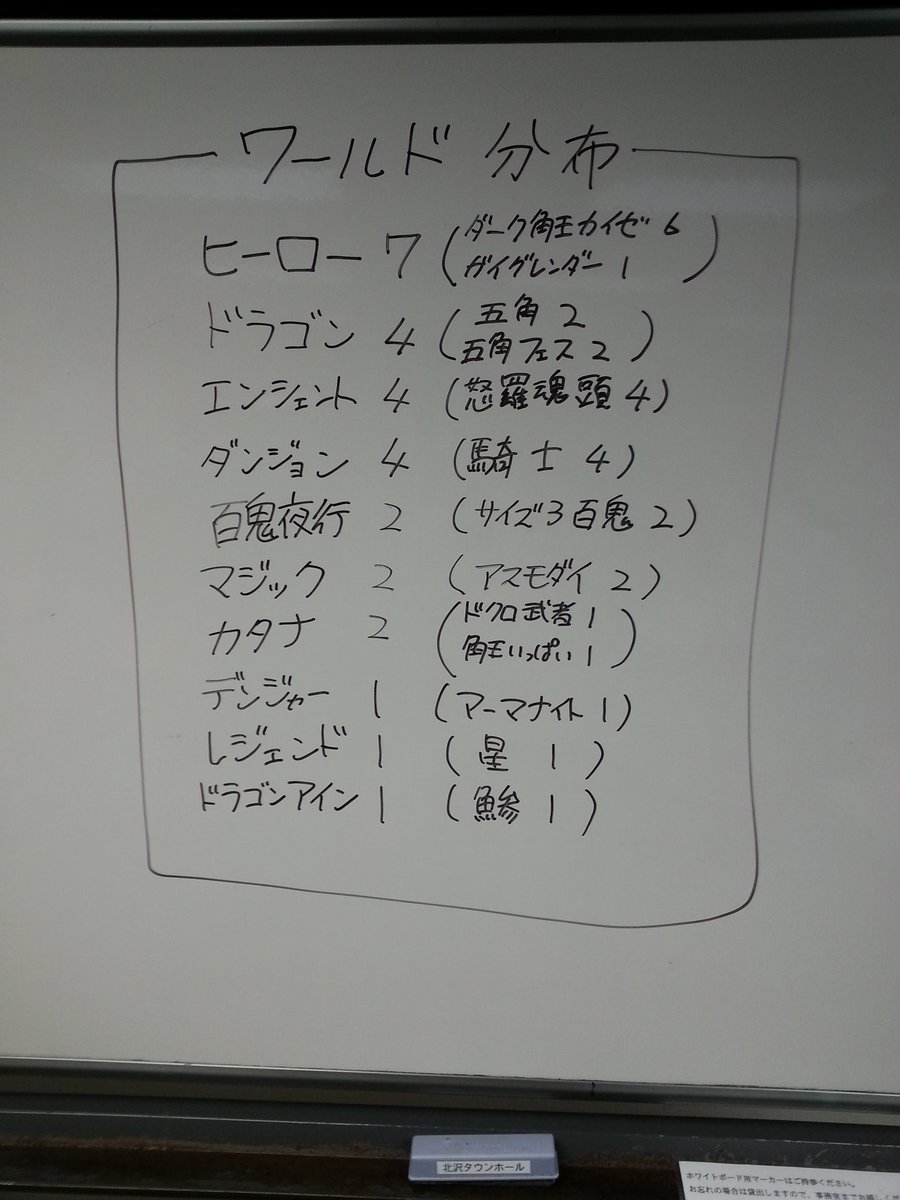 ワールド 分布
ヒーロー 7 (ダーク角王カイゼ 6
ガイグレンダー 1)
ドラゴン 4 (五角 2
五角フェス 2)
エンシェント 4 (怒羅魂頭 4)
ダンジョン 4 (騎士 4)
百鬼夜行 2 (サイズ3百鬼 2)
マジック 2 (アスモダイ 2)
カタナ 2 (ドクロ武者 1
角王いっぱい 1)
デンジャー 1 (アーマナイト 1)
レジェンド 1 (星 1)
ドラゴンアイン 1 (鰺 1)
北沢タウンホール
ホワイトボード用マーカーはご持参ください。
お忘れの場合は貸出しますので、事務室までお越しく